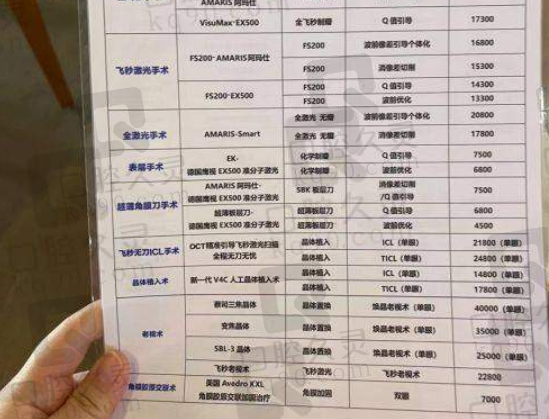 AMARIS 阿玛仕
VisuMax-EX500 全飞秒制瓣 Q值引导 17300
飞秒激光手术 FS200-AMARIS阿玛仕 FS200 波前像差引导个体化 16800
FS200 消像差切削 15300
FS200-EX500 FS200 Q值引导 14300
FS200 波前优化 13300
全激光手术 AMARIS-Smart 全激光 无瓣 波前像差引导个体化 20800
全激光 无瓣 消像差切削 17800
表层手术 EK- 化学制瓣 Q值引导 7500
德国鹰视 EX500 准分子激光 化学制瓣 波前优化 6800
超薄角膜刀手术 AMARIS 阿玛仕- SBK 板层刀 消像差切削 7500
德国鹰视 EX500 准分子激光 /Q值引导
超薄板层刀- 超薄板层刀 Q值引导 6800
德国鹰视 EX500 准分子激光 超薄板层刀 波前优化 4500
飞秒无刀ICL手术 OCT精准引导飞秒激光扫描 晶体植入 ICL（单眼） 21800（单眼）
全程无刀无忧 晶体植入 TICL（单眼） 24800（单眼）
晶体植入术 新一代 V4C 人工晶体植入术 晶体植入 ICL（单眼） 14800（单眼）
晶体植入 TICL（单眼） 17800（单眼）
老视术 蔡司三焦晶体 晶体置换 焕晶老视术（单眼） 40000（单眼）
变焦晶体 晶体置换 焕晶老视术（单眼） 35000（单眼）
SBL-3 晶体 晶体置换 焕晶老视术（单眼） 25000（单眼）
飞秒老视术 飞秒激光 飞秒老视术 22800
角膜胶原交联术 美国 Avedro KXL 角膜加固 双眼 7000
角膜胶原交联加固治疗
口腔久灵
kq9l.com